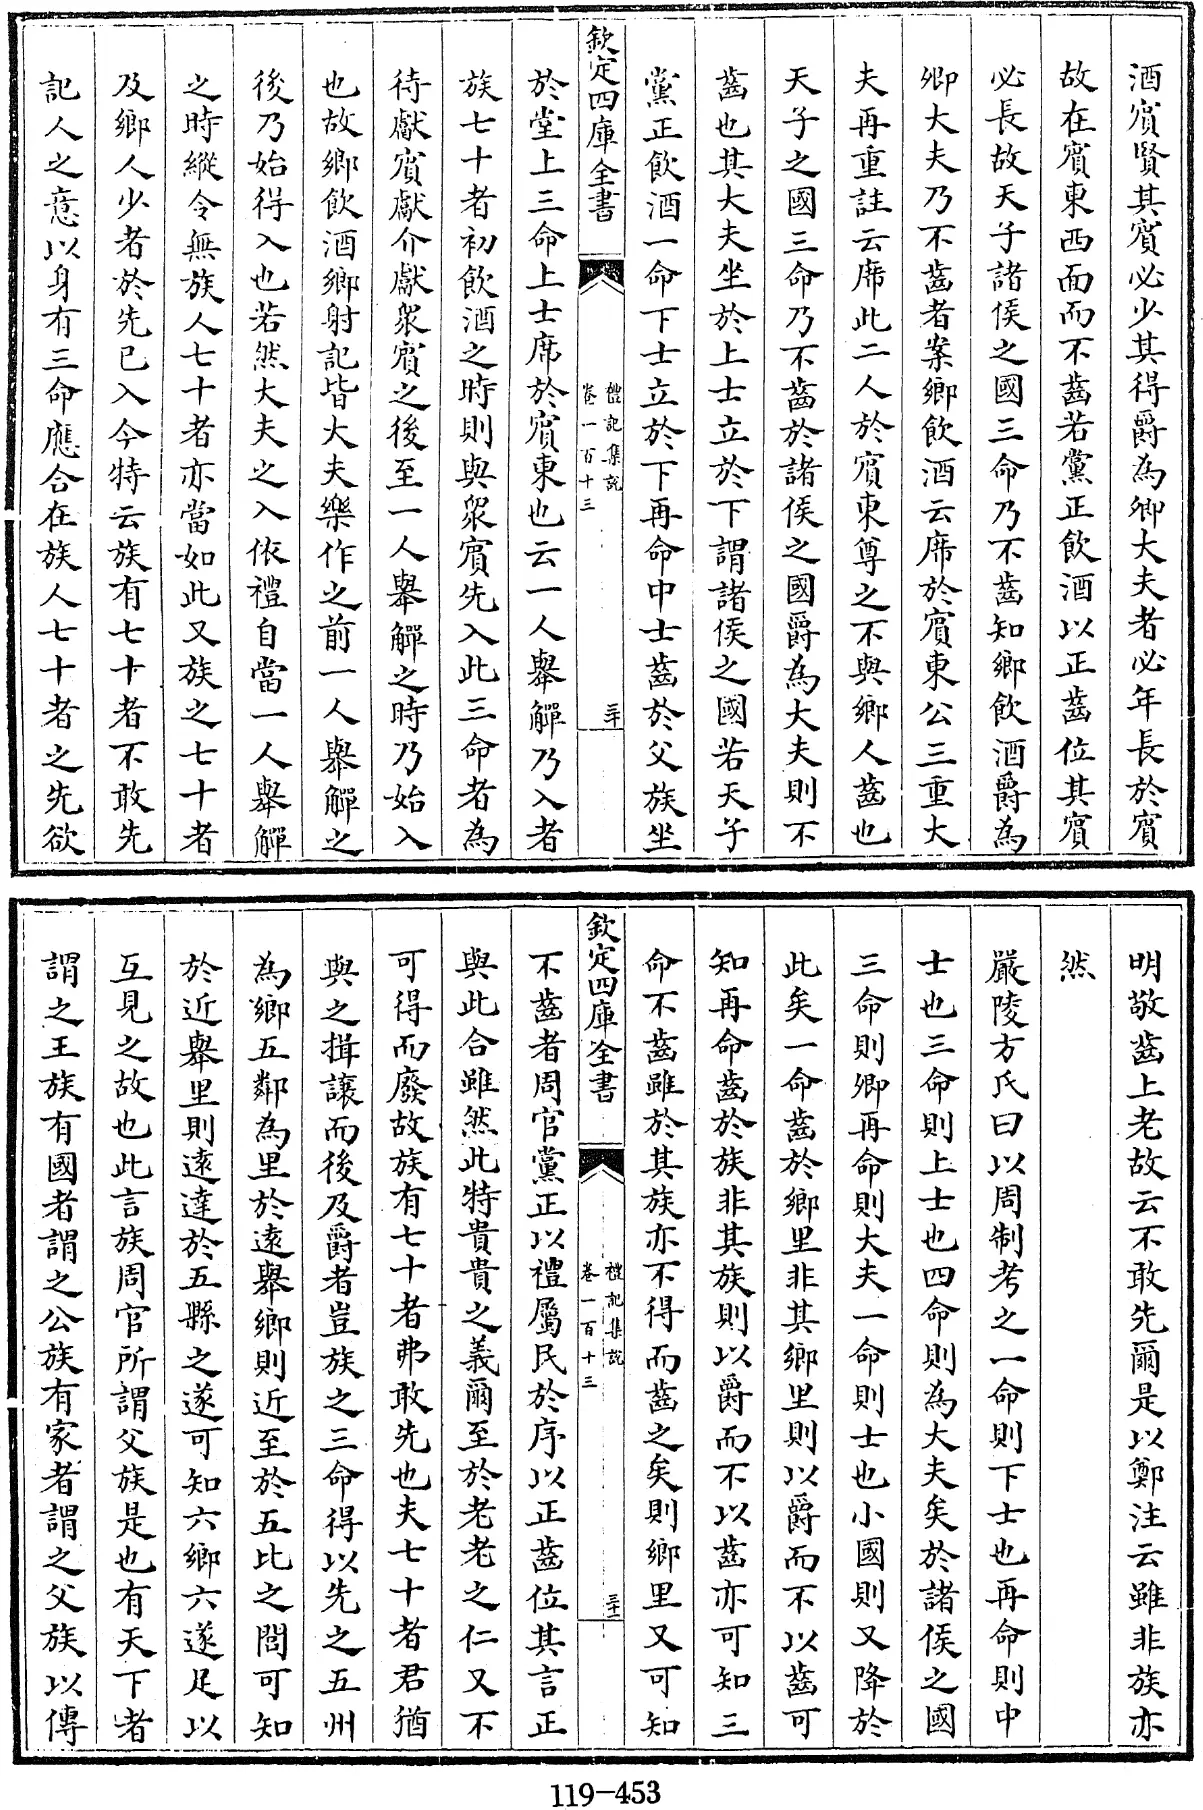 酒賔賢其賔必少其得爵為卿大夫者必年長於賔
故在賔東西面而不齒若黨正飲酒以正齒位其賔
必長故天子諸侯之國三命乃不齒知鄉飲酒爵為
卿大夫乃不齒者案鄉飲酒云席於賔東公三重大
夫再重註云席此二人於賔東尊之不與鄉人齒也
天子之國三命乃不齒於諸侯之國爵為大夫則不
齒也其大夫坐於上士立於下謂諸侯之國若天子
黨正飲酒一命下士立於下再命中士齒於父族坐
欽定四庫全書
禮記集說
卷一百十三
三十
於堂上三命上士席於賔東也云一人舉觶乃入者
族七十者初飲酒之時則與衆賔先入此三命者為
待獻賔獻介獻衆賔之後至一人舉觶之時乃始入
也故鄉飲酒鄉射記皆大夫樂作之前一人舉觶之
後乃始得入也若然大夫之入依禮自當一人舉觶
之時縱令無族人七十者亦當如此又族之七十者
及鄉人少者於先已入今特云族有七十者不敢先
記人之意以身有三命應合在族人七十者之先欲
明敬齒上老故云不敢先爾是以鄭注云雖非族亦
然
嚴陵方氏曰以周制考之一命則下士也再命則中
士也三命則上士也四命則為大夫矣於諸侯之國
三命則卿再命則大夫一命則士也小國則又降於
此矣一命齒於鄉里非其鄉里則以爵而不以齒可
知再命齒於族非其族則以爵而不以齒亦可知三
命不齒雖於其族亦不得而齒之矣則鄉里又可知
欽定四庫全書
禮記集說
卷一百十三
三十一
不齒者周官黨正以禮屬民於序以正齒位其言正
與此合雖然此特貴貴之義爾至於老老之仁又不
可得而廢故族有七十者弗敢先也夫七十者君猶
與之揖讓而後及爵者豈族之三命得以先之五州
為鄉五鄰為里於遠舉鄉則近至於五比之閭可知
於近舉里則遠達於五縣之遂可知六鄉六遂足以
互見之故也此言族周官所謂父族是也有天下者
謂之王族有國者謂之公族有家者謂之父族以傳
119-453